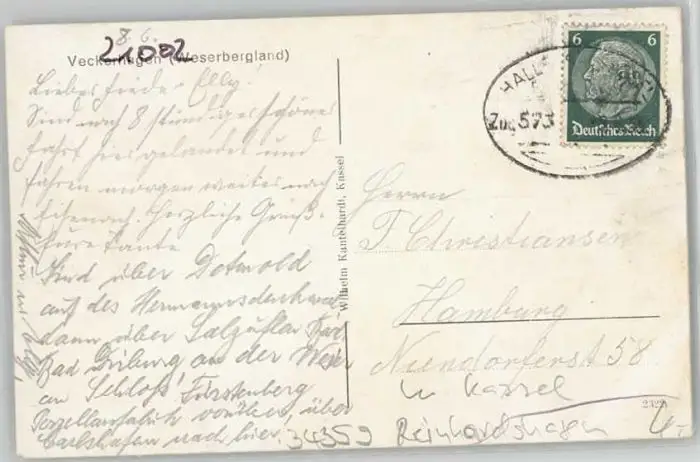 8. 6.
21002
Veckerhagen (Weserbergland)
Liebes Friedel - Elly!
Sind nach 8 stündiger schöner
Fahrt hier gelandet und
fahren morgen weiter nach
Eisenach. Herzliche Grüße
Eure Tante
Sind über Detmold
auf des Hermannsdenkmal
dann über Salzuflen Bad
Bad Driburg an der Weser
an Schloß Fürstenberg
Porzellanfabrik vorüber, über
Carlshafen nach hier.
Wilhelm Kantelhardt, Kassel
6 6
Deutsches Reich
HALLE
Zug 573
Herrn
T. Christiansen
Hamburg
Niendorferst 58
Kassel
34359 Reinhardshagen
4,-